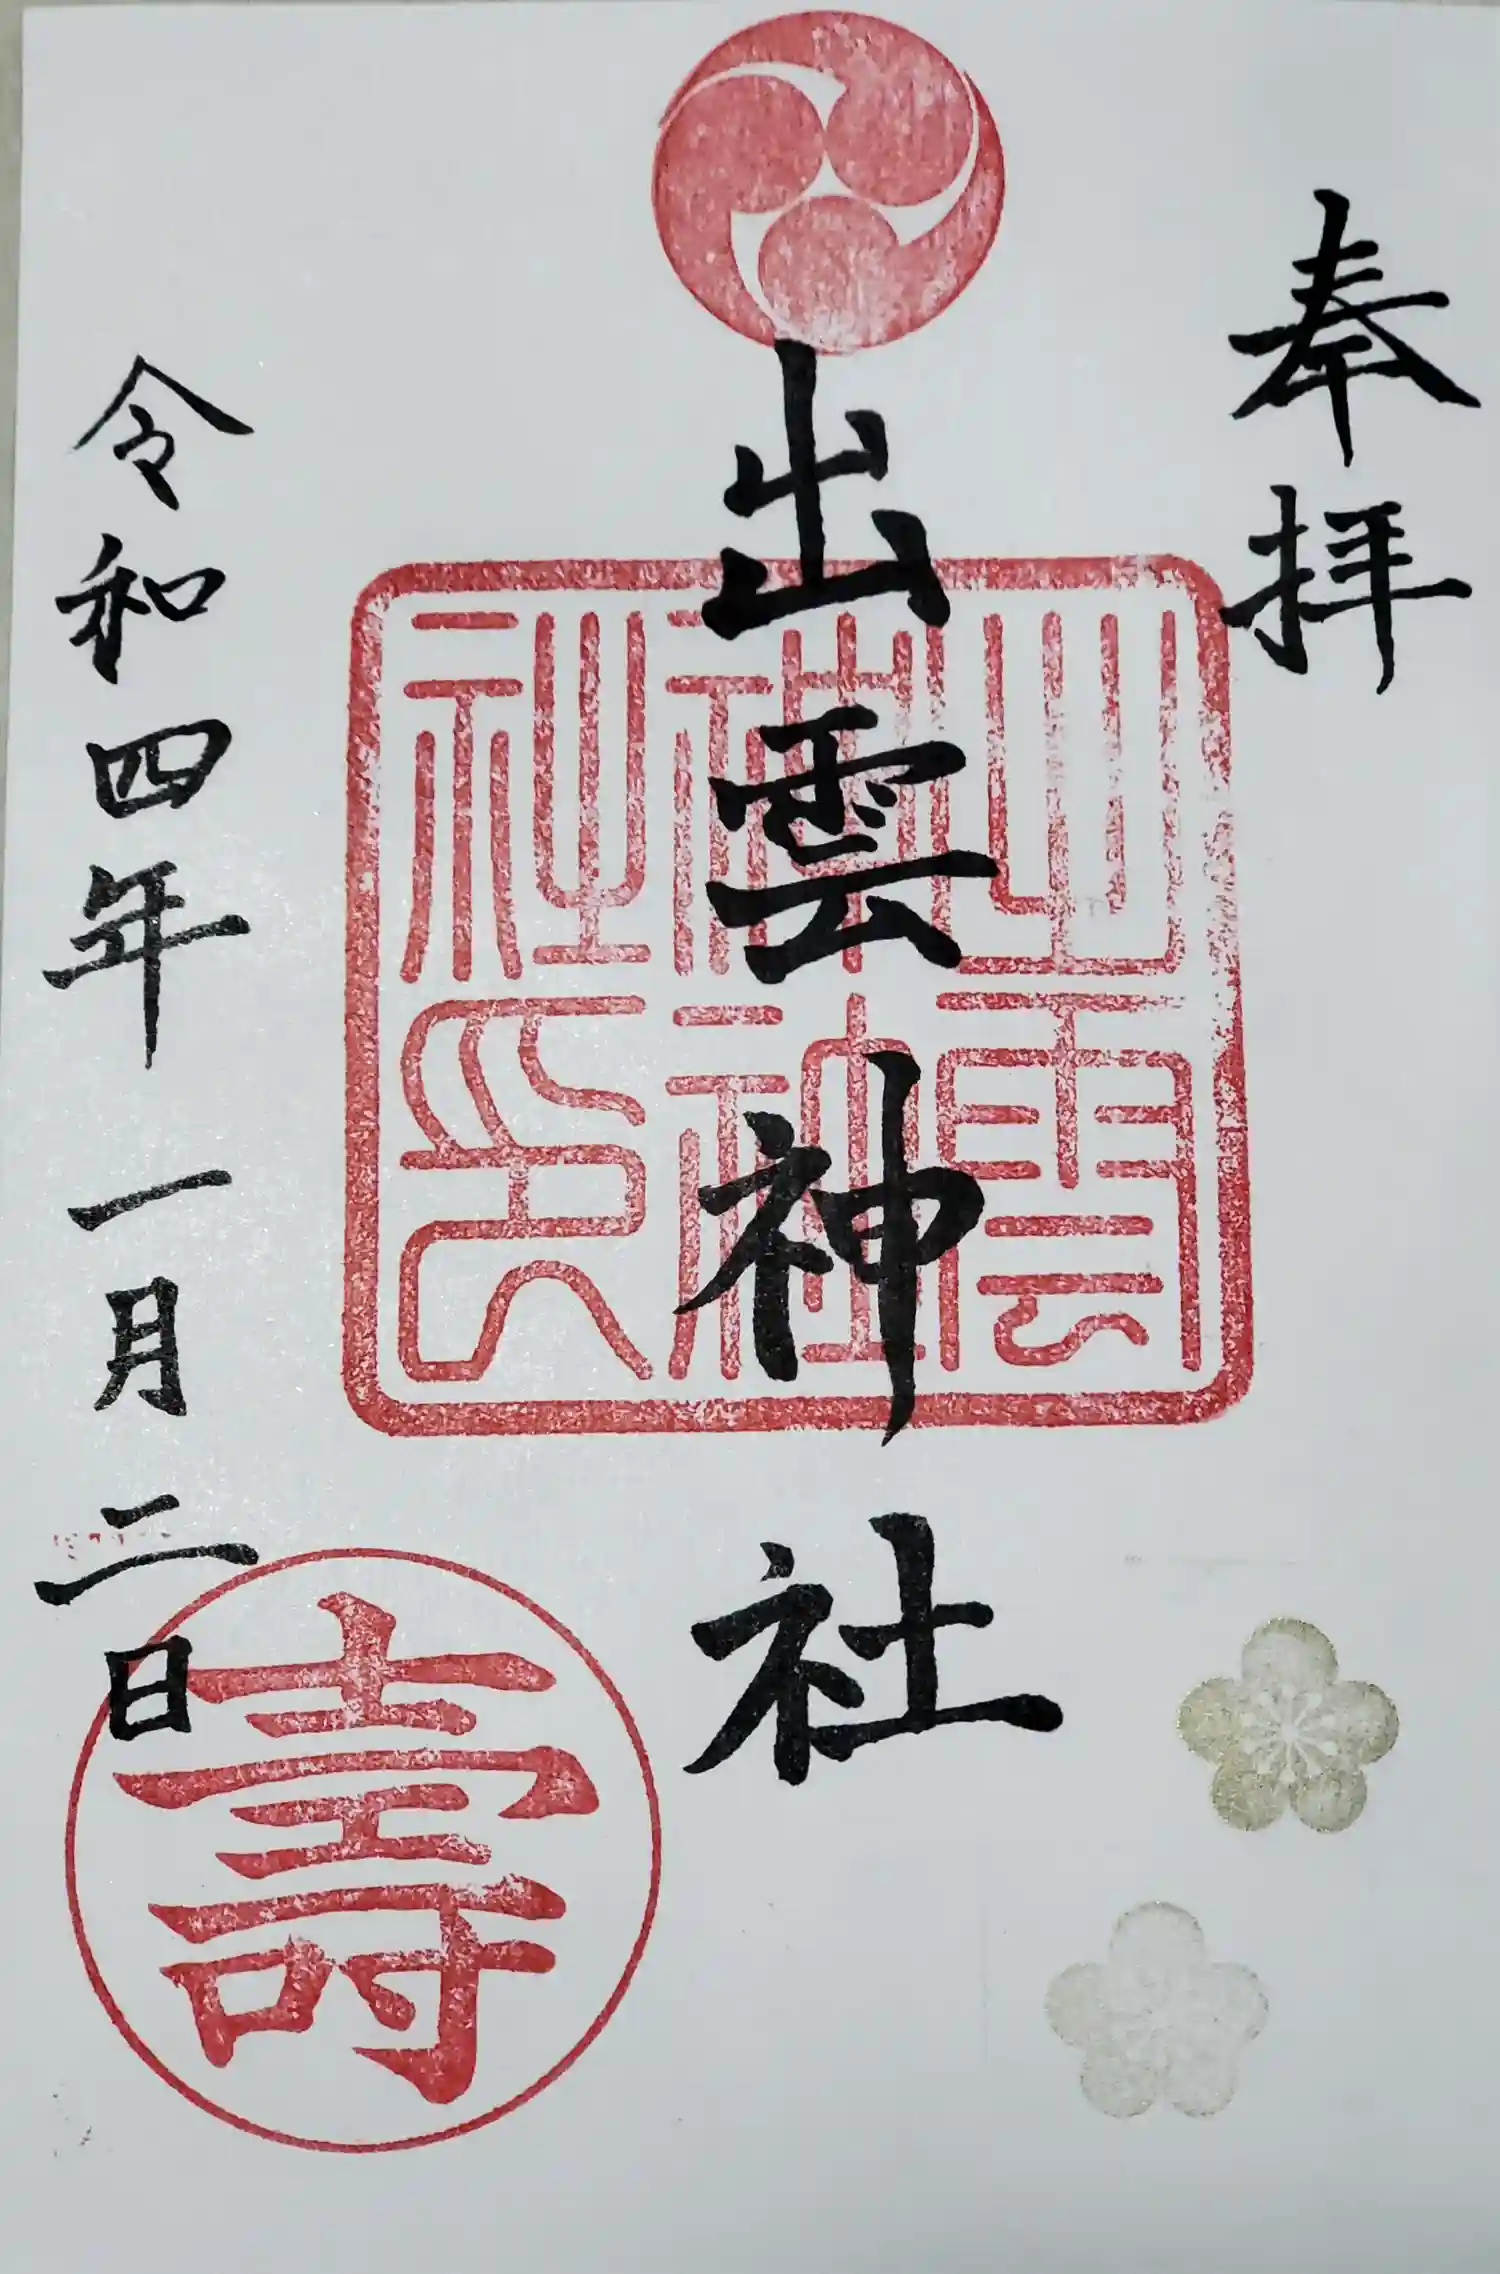 奉拝
出雲神社
出雲神社神社印
令和四年一月二日
壽